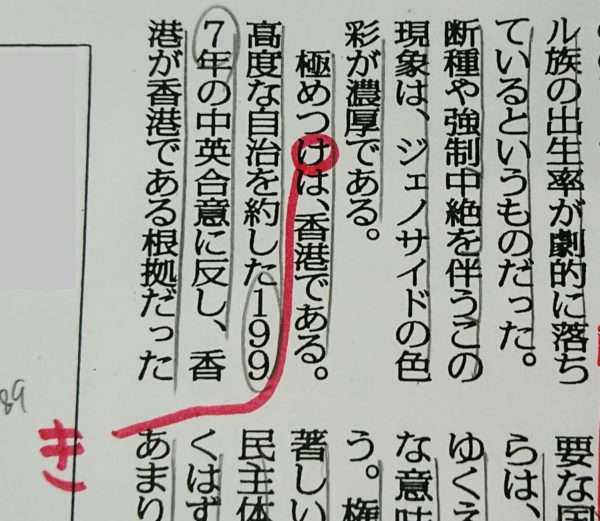 ル族の出生率が劇的に落ち
ているというものだった。
断種や強制中絶を伴うこの
現象は、ジェノサイドの色
彩が濃厚である。
極めつけは、香港である。
高度な自治を約した199
7年の中英合意に反し、香
港が香港である根拠だった
要な国
らは、
ゆくえ
な意味
う。権
著しい
民主体
くはず
あまり
き
89